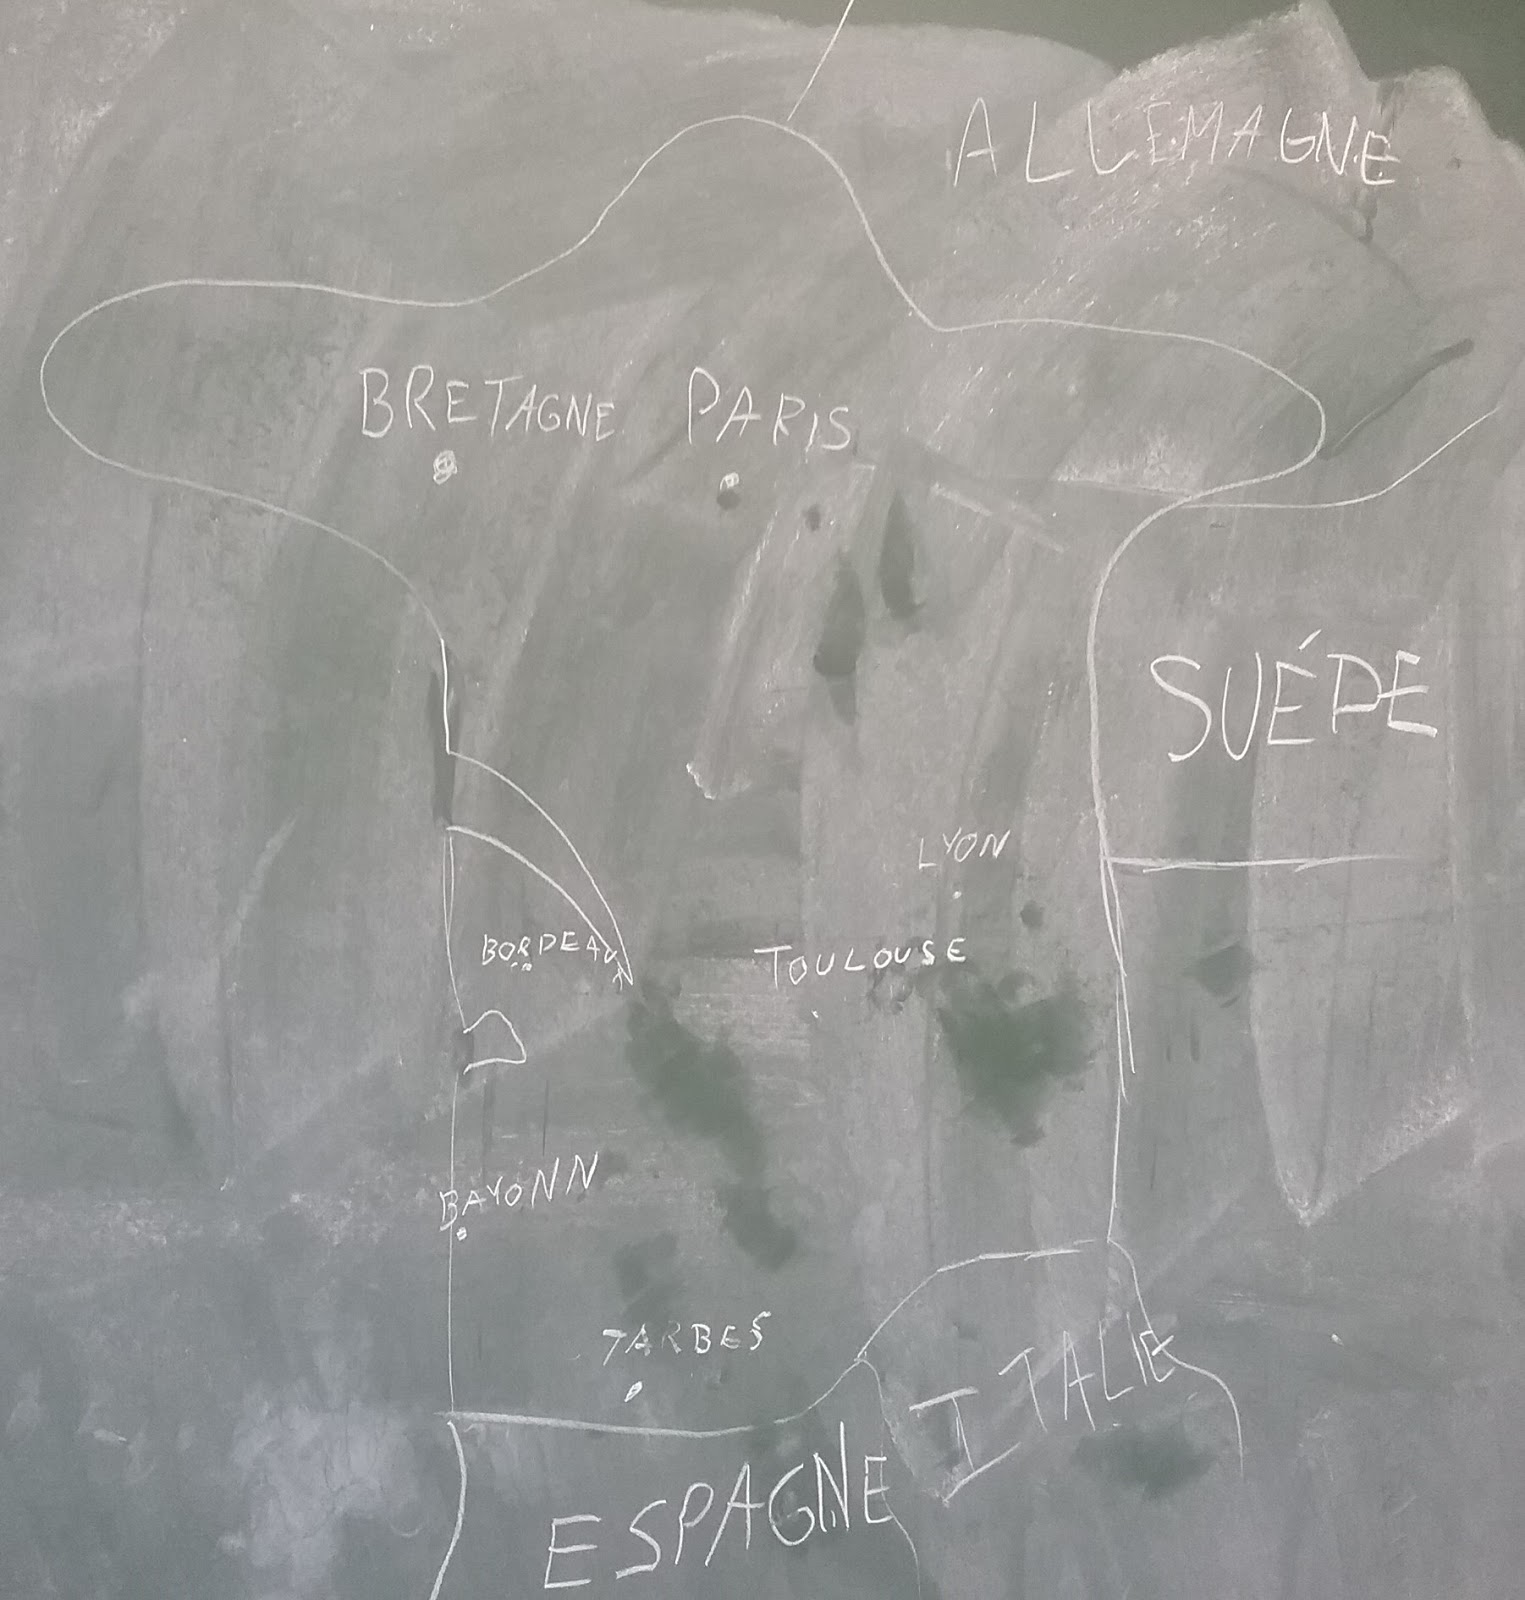 ALLEMAGNE
BRETAGNE PARIS
SUÉDE
LYON
BORDEAUX
TOULOUSE
BAYONN
TARBES
ITALIE
ESPAGNE